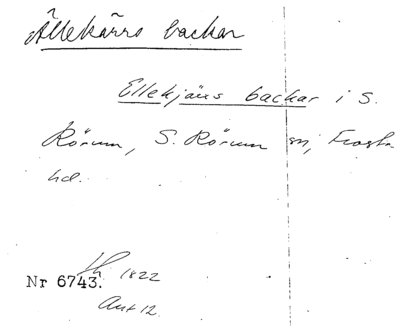 Ällekärrs backar
Ellekjärs backar i S.
Rörum, S. Rörum sn, Frosta
hd.
1822
Nr 6743.
Ant 12.